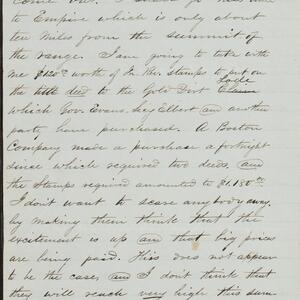 to Empire which is only about
ten miles from the summit of
the range. I am going to take with
me $1200 worth of Int. Rev. Stamps to put on
the title deed to the Gold Dirt Lode Claim
which Gov. Evans. Sec Elbert and another
party have purchased. A Boston
Company made a purchase a fortnight
since which required two deeds, and
the Stamps required amounted to $1,150.00
I don't want to scare anybody away.
by making them think that the
excitement is up and that big prices
are being paid. This does not appear
to be the case, and I don't think that
they will reach very high this